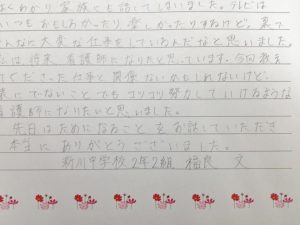 よくわかり家族にも話してしまいました。テレビは
いつもおもしろかったり楽しかったりするけど、裏で
こんなに大変な仕事をしているんだなと思いました。
私は将来看護師になりたいと思っています。今回教え
てくださった仕事と関係ないかもしれないけど、
にでないことでもコツコツ努力していけるような
看護師になりたいと思いました。
先日はためになるお話をしていただき
本当にありがとうございました。
新川中学校2年2組 福良 文